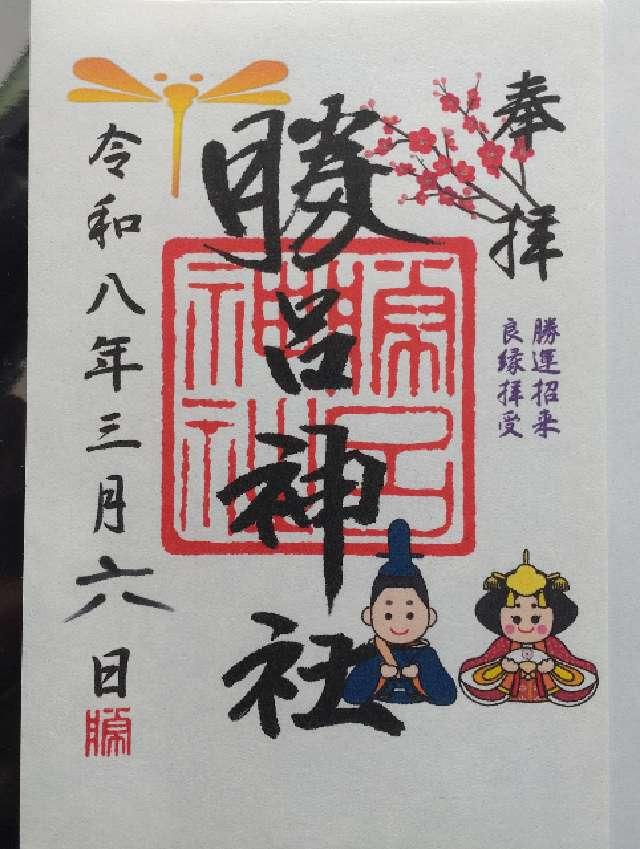 奉拝
勝運招来
良縁拝受
勝呂神社
令和八年三月六日
勝